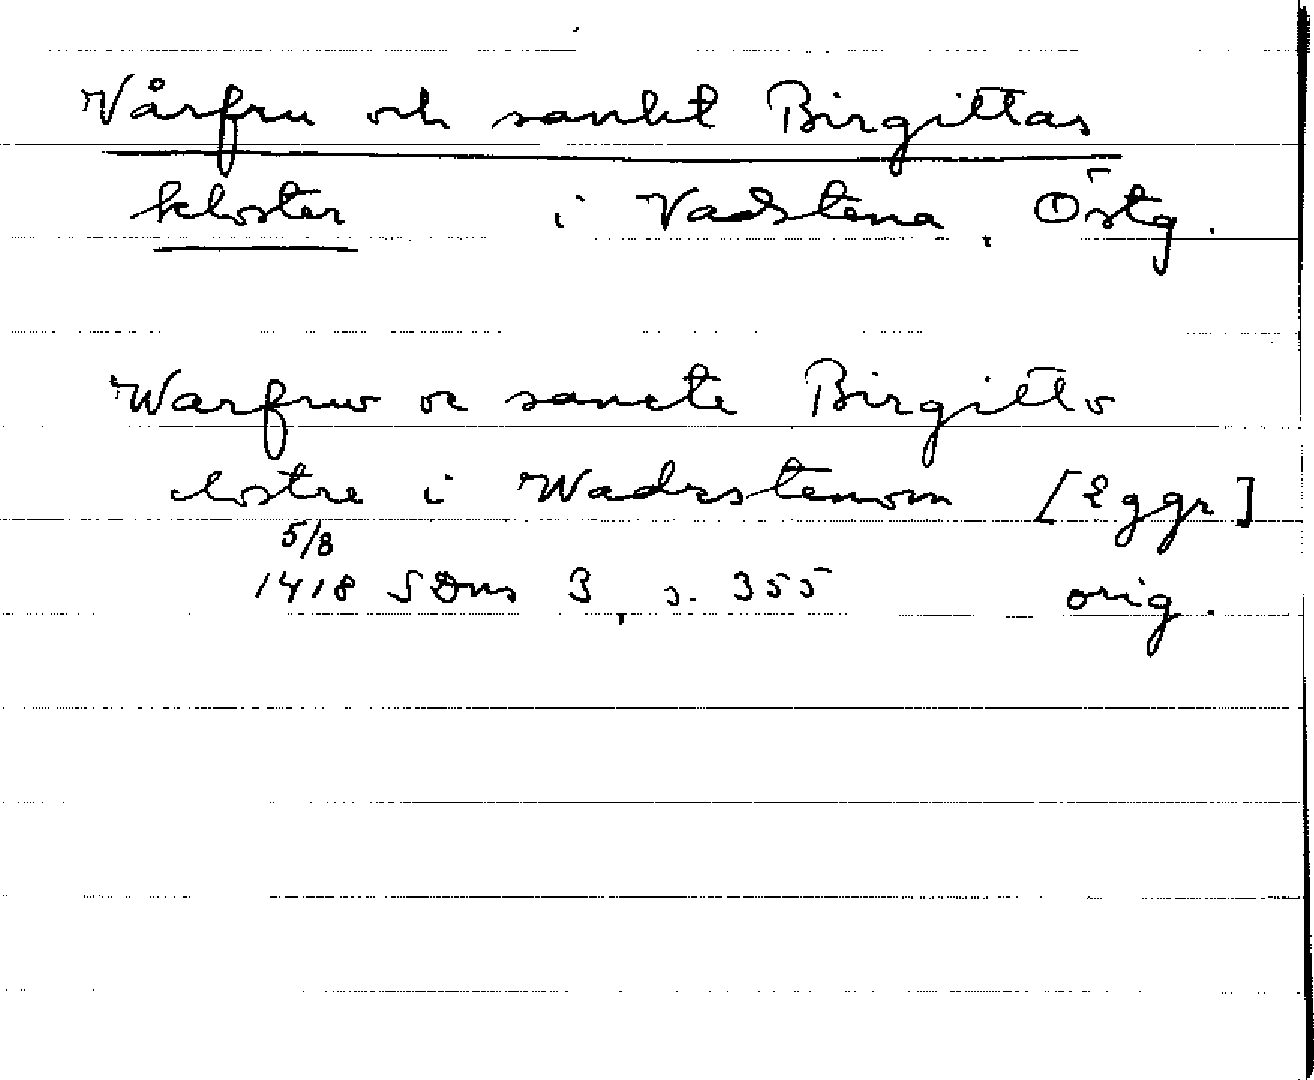 Vårfru och sankt Birgittas
kloster i Vadstena, Östg.
Warfrwo oc sancte Birgitto
clostre i Wadzstenom [Eggr]
5/8
1418 SDns 3, s. 355 orig.